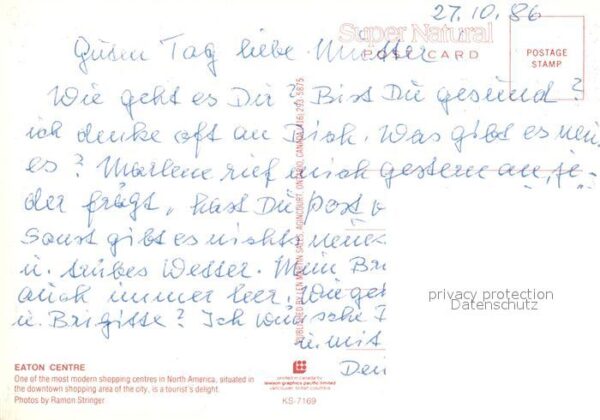 27.10.86
Super Natural
POSTCARD
POSTAGE
STAMP
Guten Tag liebe Mutter
Wie geht es Dir? Bist Du gesund?
ich denke oft an Dich. Was gibt es neu-
es? Marlene rief mich gestern an, je-
der frägt, hast Du Post
Sonst gibt es nichts neues
u. trübes Wetter. Mein Bri
auch immer leer. Wie geh
u. Brigitte? Ich wünsche
u. mit
Dein
privacy protection
Datenschutz
EATON CENTRE
One of the most modern shopping centres in North America, situated in
the downtown shopping area of the city, is a tourist's delight.
Photos by Ramon Stringer
printed in canada by
lawson graphics pacific limited
vancouver, british columbia
KS-7169
PUBLISHED BY LEN MARTIN SALES, AGINCOURT, ONTARIO, CANADA (416) 293-5875